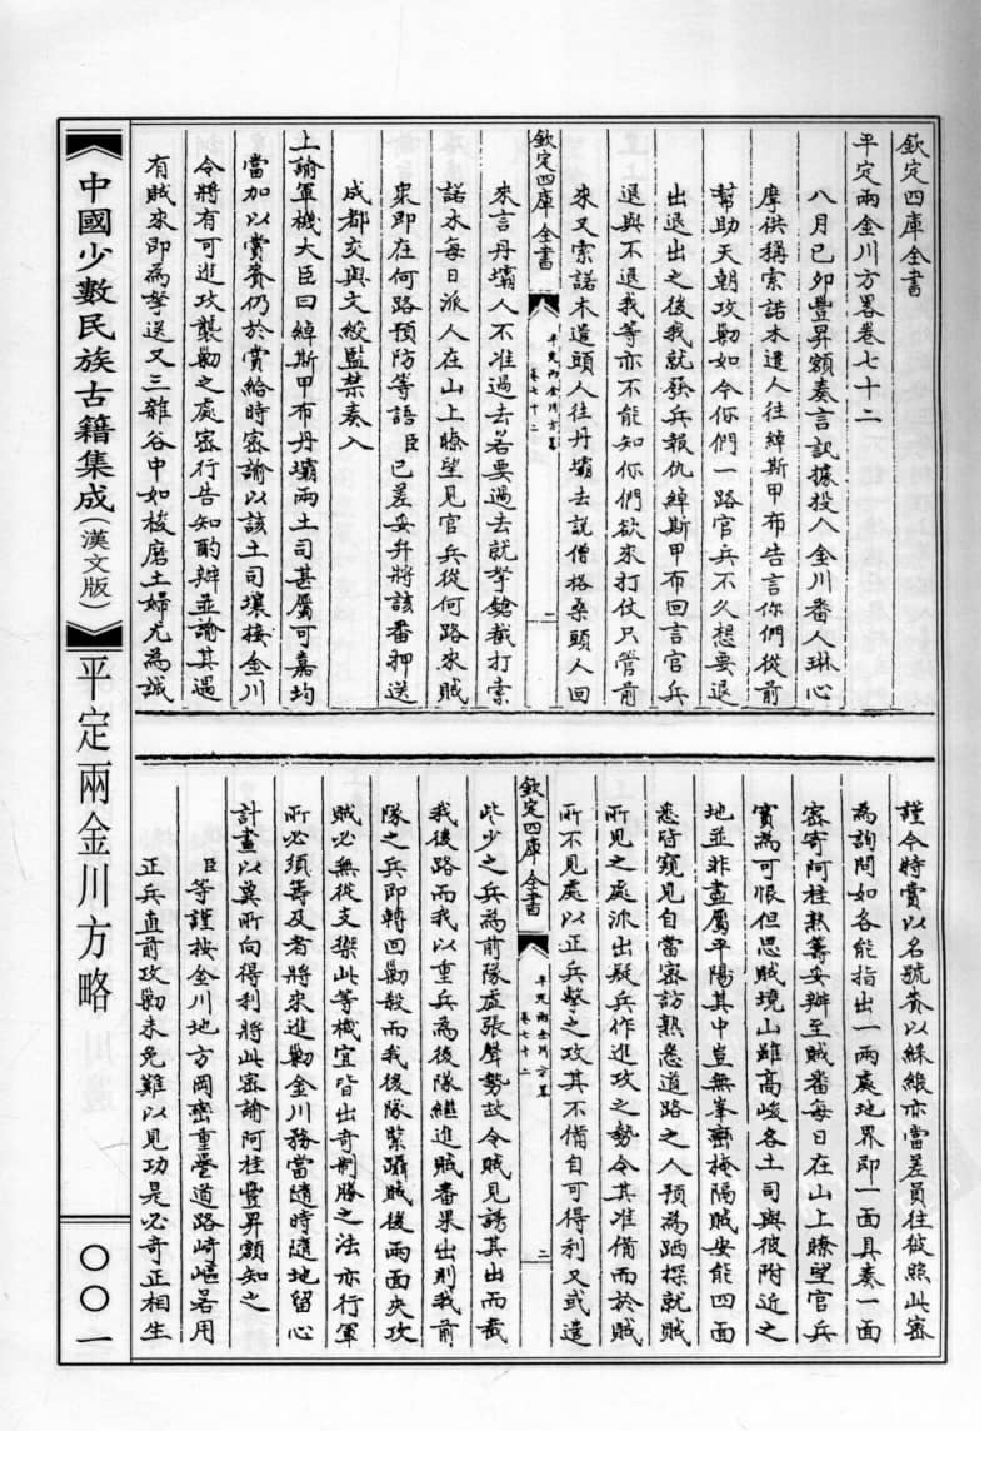 欽定四庫全書
平定兩金川方畧卷七十二
八月己卯豐昇額奏言訊據投入金川番人琳心
摩供稱索諾木遣人往綽斯甲布告言你們從前
幫助天朝攻勦如今你們一路官兵不久想要退
出退出之後我就發兵報仇綽斯甲布回言官兵
退與不退我等亦不能知你們欲來打仗只管前
來又索諾木遣頭人往丹壩去說僧格桑頭人回
欽定四庫全書
平定兩金川方畧
卷七十二
一
來言丹壩人不准過去若要過去就拏鎗截打索
諾木每日派人在山上瞭望見官兵從何路來賊
衆即在何路預防等語臣已差妥弁將該番押送
成都交與文綬監禁奏入
上諭軍機大臣曰綽斯甲布丹壩兩土司甚屬可嘉均
當加以賞賚仍於賞給時密諭以該土司壤接金川
令將有可進攻襲勦之處密行告知酌辦並諭其遇
有賊來即為拏送又三雜谷中如梭磨土婦尤為誠
謹今特賞以名號賚以綵緞亦當差員往彼照此密
為詢問如各能指出一兩處地界即一面具奏一面
密寄阿桂熟籌妥辦至賊番每日在山上瞭望官兵
實為可恨但思賊境山雖高峻各土司與彼附近之
地並非盡屬平陽其中豈無峯巒掩隔賊安能四面
悉皆窺見自當密訪熟悉道路之人預為跴探就賊
所見之處派出疑兵作進攻之勢令其准備而於賊
所不見處以正兵擊之攻其不備自可得利又或遣
欽定四庫全書
平定兩金川方畧
卷七十二
二
些少之兵為前隊虛張聲勢故令賊見誘其出而截
我後路而我以重兵為後隊繼進賊番果出則我前
隊之兵即轉回勦殺而我後隊緊躡賊後兩面夾攻
賊必無從支禦此等機宜皆出奇制勝之法亦行軍
所必須籌及者將來進勦金川務當隨時隨地留心
計畫以冀所向得利將此密諭阿桂豐昇額知之
臣等謹按金川地方岡巒重疊道路崎嶇若用
正兵直前攻勦未免難以見功是必奇正相生
中國少數民族古籍集成(漢文版)
平定兩金川方略
〇〇一